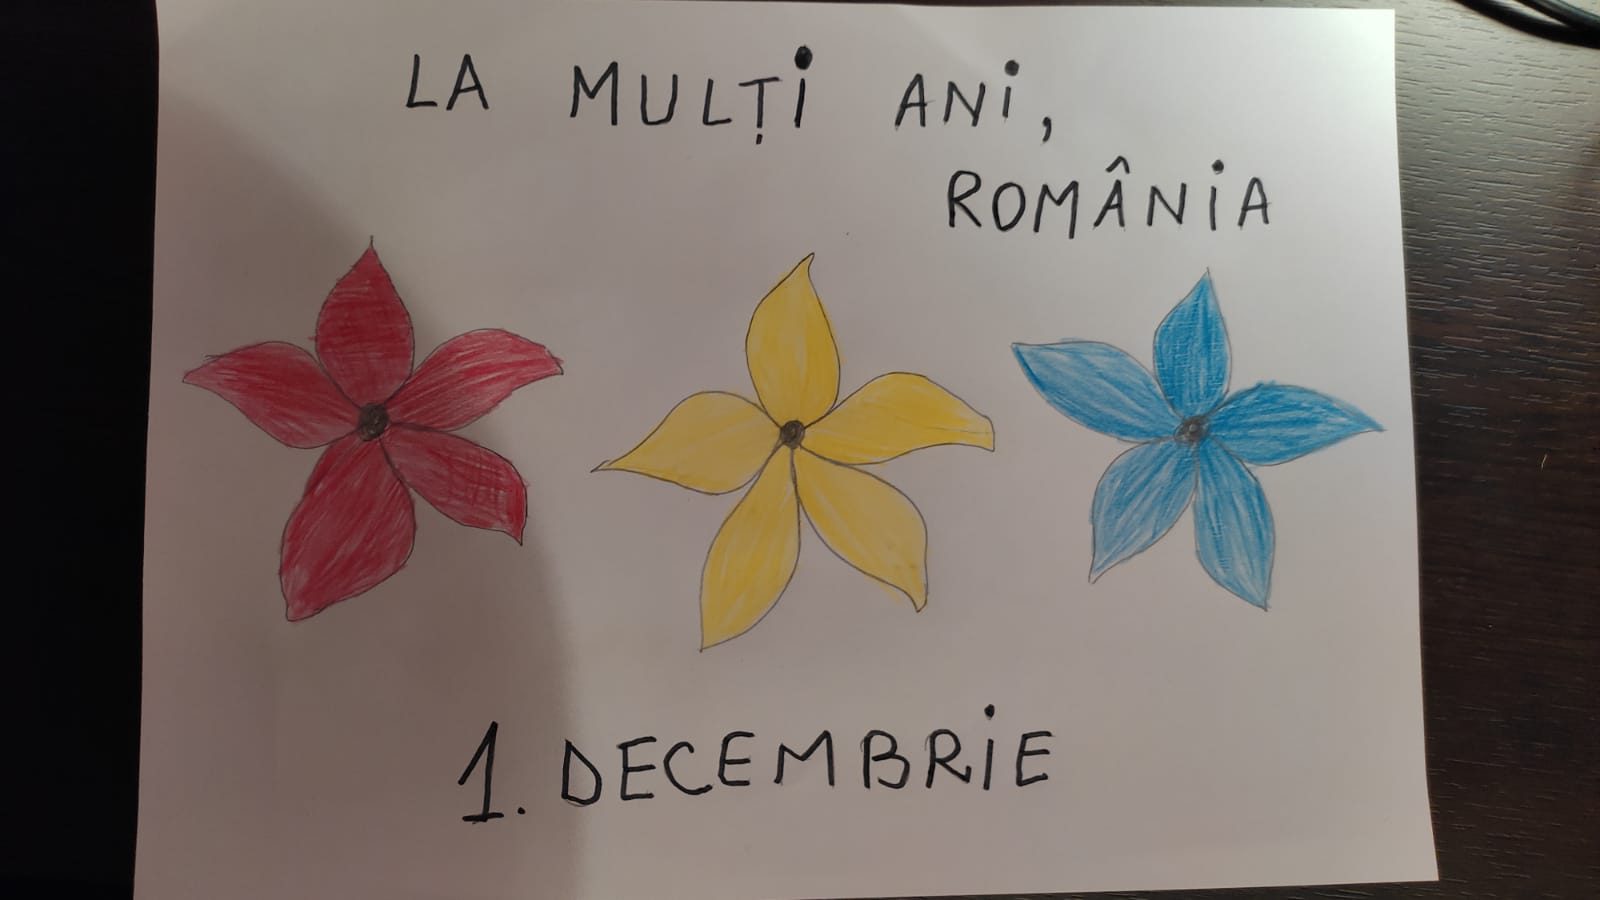 LA MULȚi ANi,
ROMÂNiA
1. DECEMBRiE